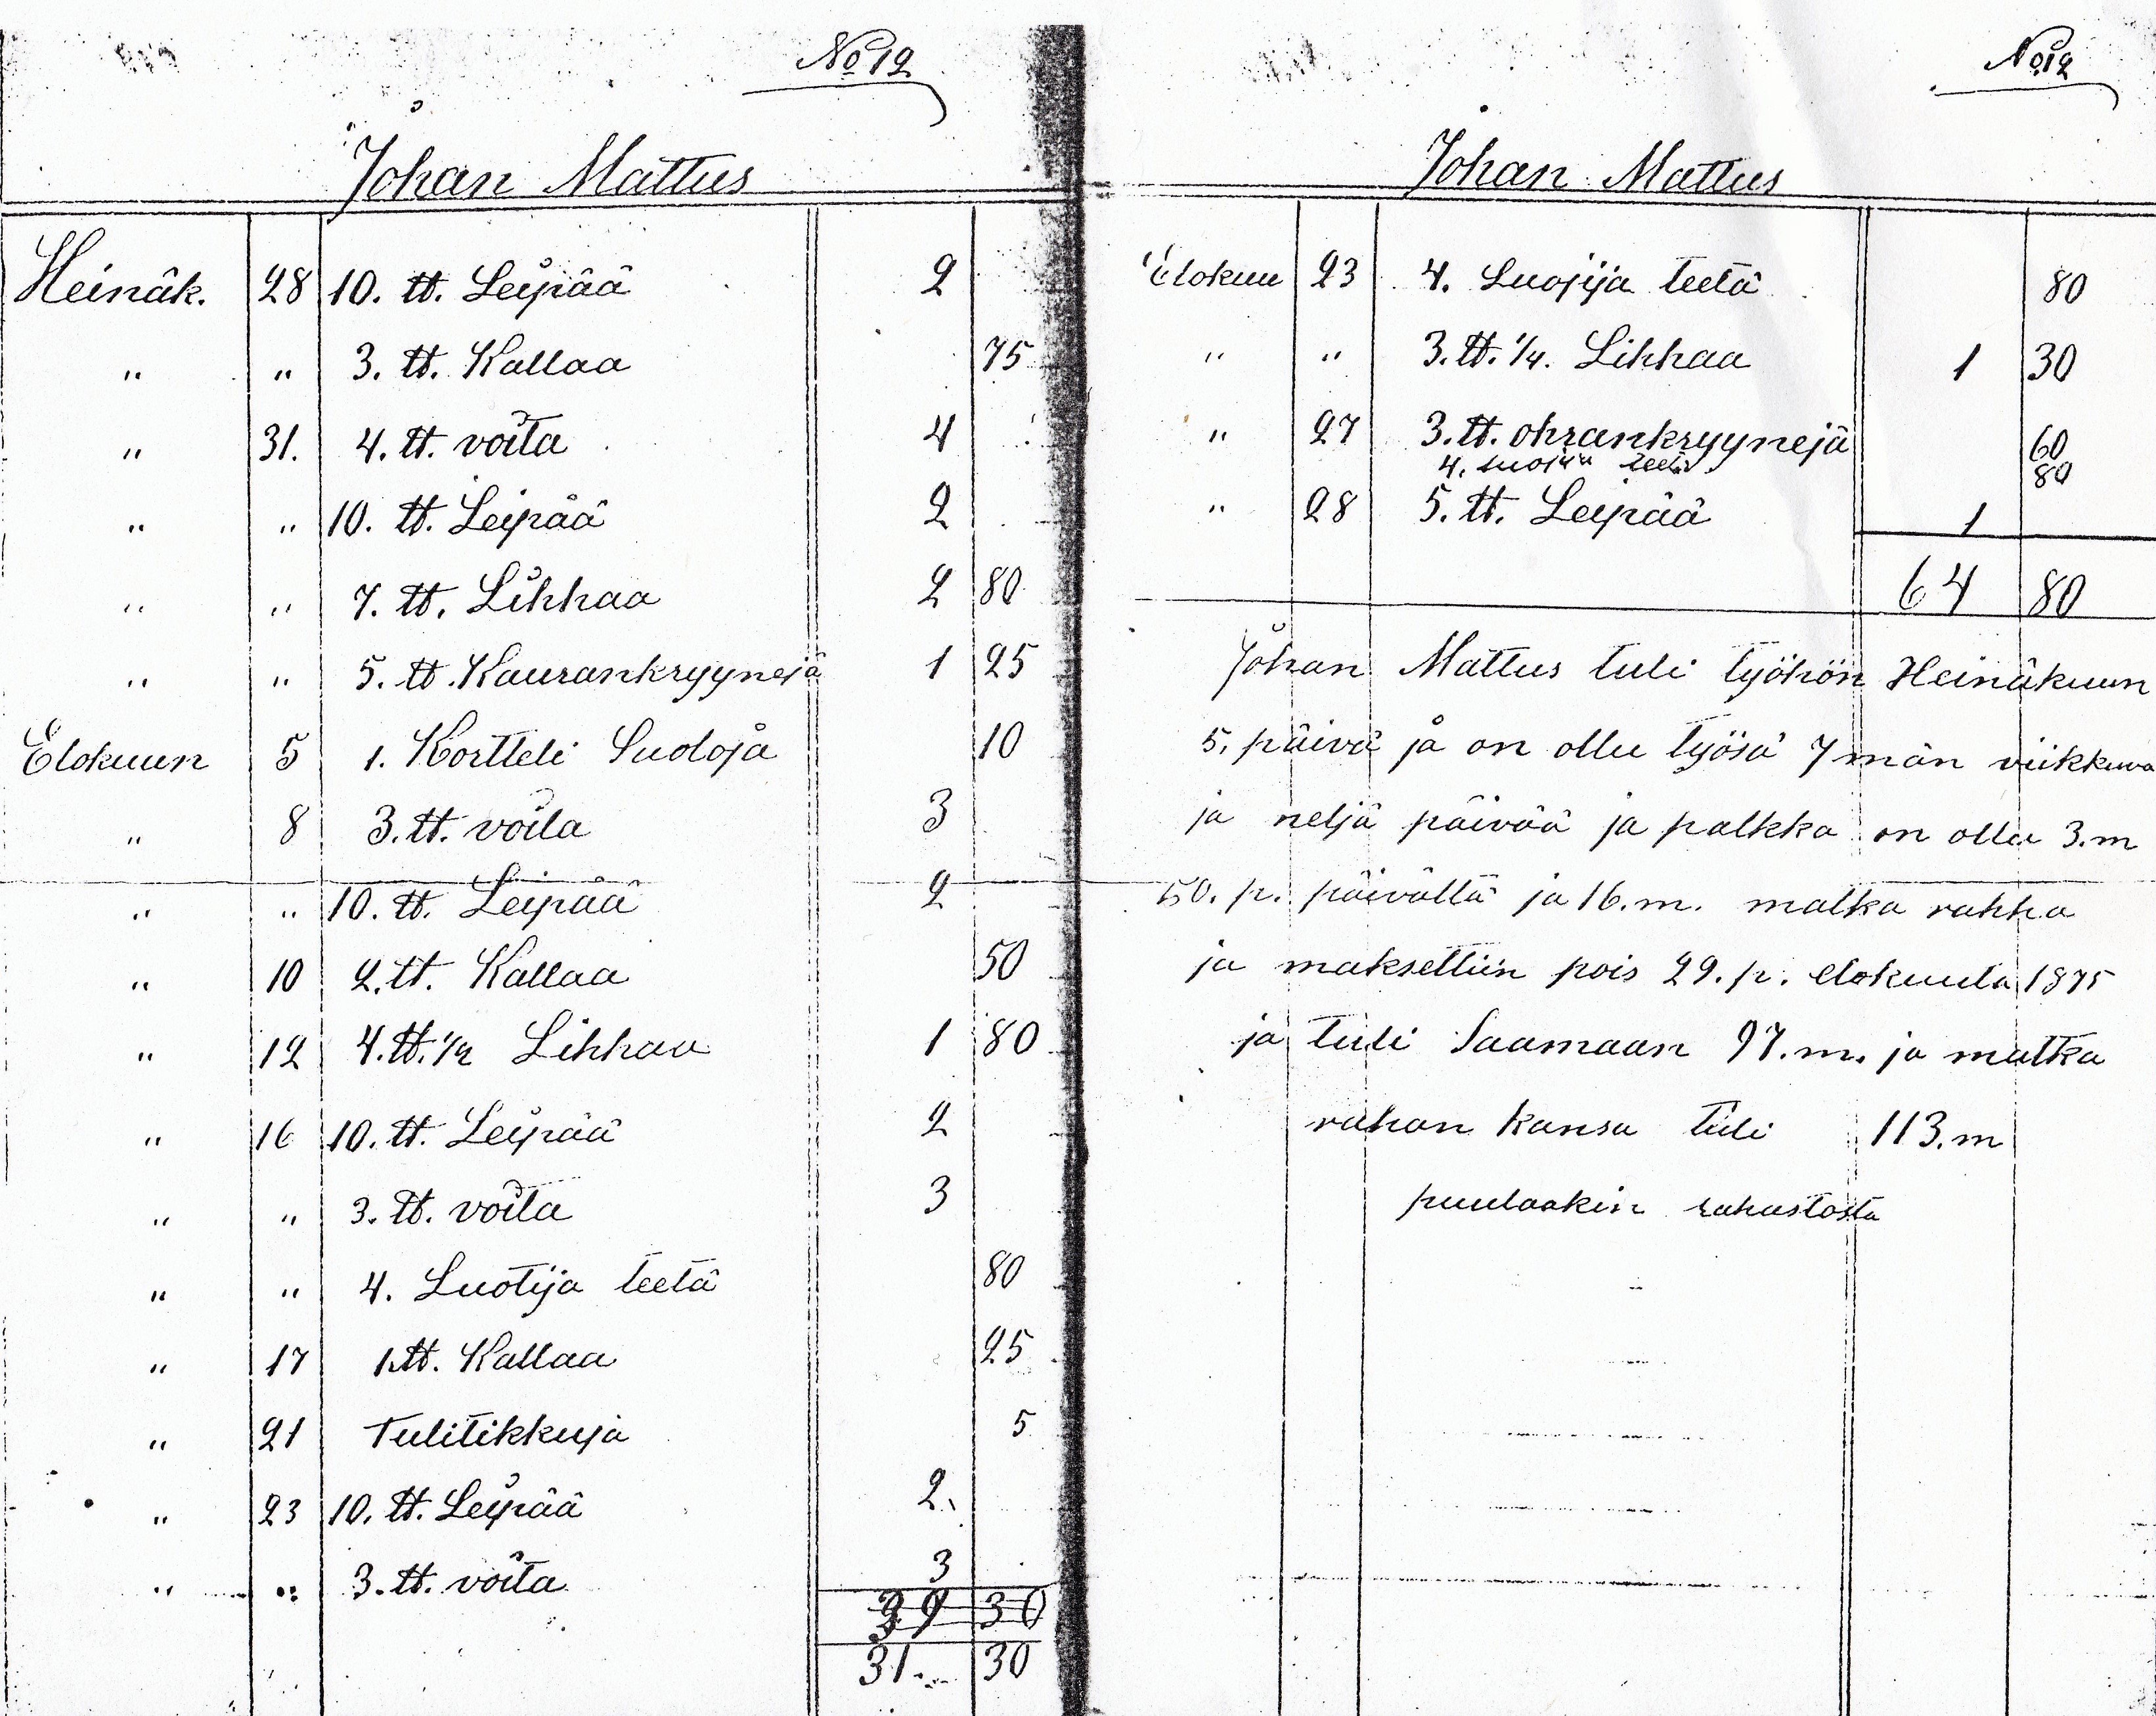 No 12
Johan Mattus
Heinäk. 28 10. tt. Leipää 2
" " 3. tt. Kallaa 75
" 31. 4. tt. voita 4
" " 10. tt. Leipää 2
" " 7. tt. Lihhaa 2 80
" " 5. tt. Kaurankryynejä 1 25
Elokuun 5 1. Kortteli Suoloja 10
" 8 3. tt. voita 3
" " 10. tt. Leipää 2
" 10 2. tt. Kallaa 50
" 12 4. tt. 1/2 Lihhaa 1 80
" 16 10. tt. Leipää 2
" " 3. tt. voita 3
" " 4. Luotija teetä 80
" 17 1. tt. Kallaa 25
" 21 Tulitikkuja 5
" 23 10. tt. Leipää 2
" " 3. tt. voita 3
30
31. 30
No 12
Johan Mattus
Elokuu 23 4. Luojija teetä 80
" " 3. tt. 1/4. Lihhaa 1 30
" 27 3. tt. ohrankryynejä 60
4. teetä 80
" 28 5. tt. Leipää 1
64 80
Johan Mattus tuli työhön Heinäkuun
5. päivä ja on ollu työsä 7 män viikkuva
ja neljä päivää ja palkka on ollu 3. m
50. p. päivältä ja 16. m. matka rahha
ja maksettiin pois 29. p. elokuuta 1875
ja tuli Saamaan 97. m. ja matka
rahan kansa tuli 113. m
puulaakin rahastosta